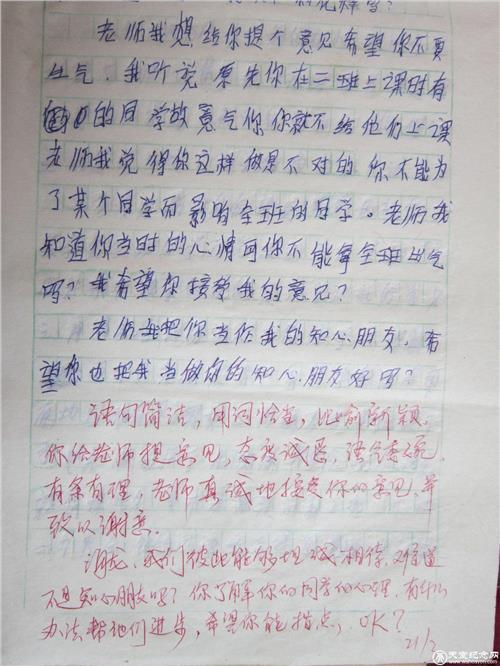 老师我想给你提个意见希望你不要
生气。我听说原先你在二班上课时有
的同学故意气你你就不给他们上课
老师我觉得你这样做是不对的你不能为
了某个同学而影响全班的同学。老师我
知道你当时的心情可你不能拿全班出气
吗?我希望你接受我的意见?
老师我把你当作我的知心朋友。希
望你也把我当做你的知心朋友好吗?
语句简洁,用词恰当,比喻新颖。
你给老师提意见,态度诚恳,语气委婉,
有条有理,老师真诚地接受你的意见,并
致以谢意。
我们彼此能够坦诚相待,难道
不是知心朋友吗?你了解你的同学的心理,有什么
办法帮他们进步,希望你能指点,OK?
天堂纪念网